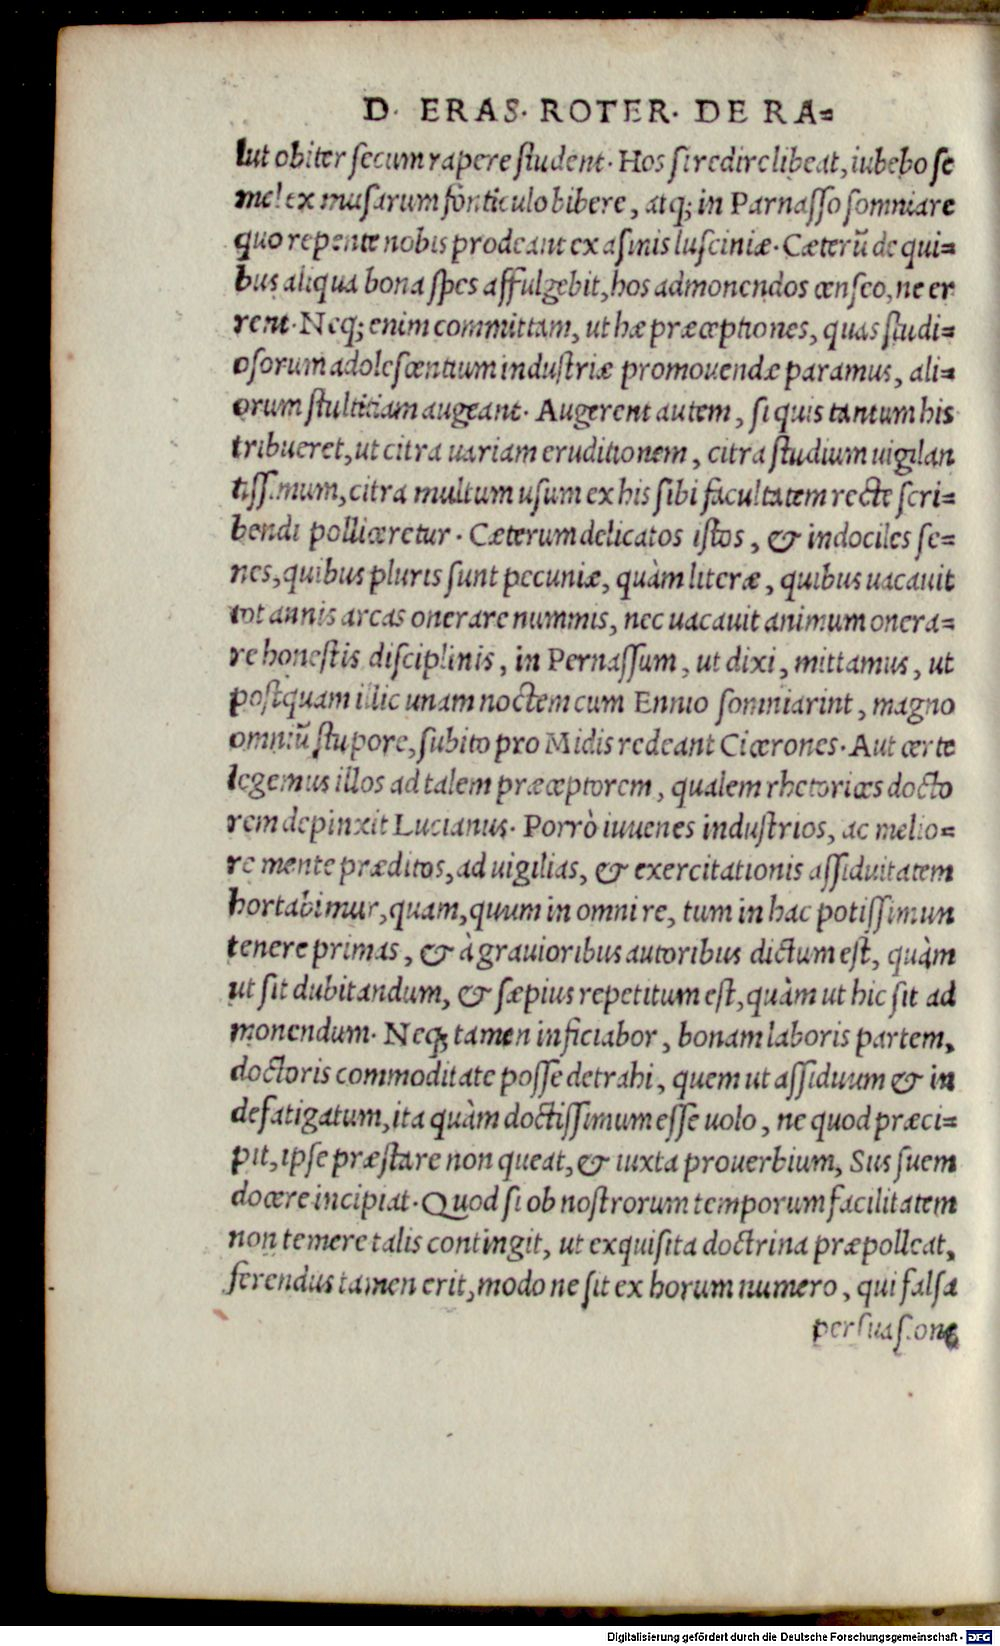 D. ERAS. ROTER. DE RA=
lut obiter secum rapere student. Hos si redire libeat, iubebo se
mel ex musarum fonticulo bibere, atq; in Parnasso somniare
quo repente nobis prodeant ex asinis lusciniæ. Cæterũ de qui=
bus aliqua bona spes affulgebit, hos admonendos censeo, ne er
rent. Neq; enim committam, ut hæ præceptiones, quas studi=
osorum adolescentium industriæ promovendæ paramus, ali=
orum stulticiam augeant. Augerent autem, si quis tantum his
tribueret, ut citra uariam eruditionem, citra studium uigilan
tissimum, citra multum usum ex his sibi facultatem recte scri=
bendi polliceretur. Cæterum delicatos istos, & indociles se=
nes, quibus pluris sunt pecuniæ, quàm literæ, quibus uacauit
tot annis arcas onerare nummis, nec uacauit animum onera=
re honestis disciplinis, in Pernassum, ut dixi, mittamus, ut
postquam illic unam noctem cum Ennio somniarint, magno
omniũ stupore, subito pro Midis redeant Cicerones. Aut certe
legemus illos ad talem præceptorem, qualem rhetorices docto
rem depinxit Lucianus. Porrò iuuenes industrios, ac melio=
re mente præditos, ad uigilias, & exercitationis assiduitatem
hortabimur, quam, quum in omni re, tum in hac potissimun
tenere primas, & à grauioribus autoribus dictum est, quàm
ut sit dubitandum, & sæpius repetitum est, quàm ut hic sit ad
monendum. Neq; tamen inficiabor, bonam laboris partem,
doctoris commoditate posse detrahi, quem ut assiduum & in
defatigatum, ita quàm doctissimum esse uolo, ne quod præci=
pit, ipse præstare non queat, & iuxta prouerbium, Sus suem
docere incipiat. Quod si ob nostrorum temporum facilitatem
non temere talis contingit, ut exquisita doctrina præpolleat,
ferendus tamen erit, modo ne sit ex horum numero, qui falsa
persuasione
Digitalisierung gefördert durch die Deutsche Forschungsgemeinschaft - DFG